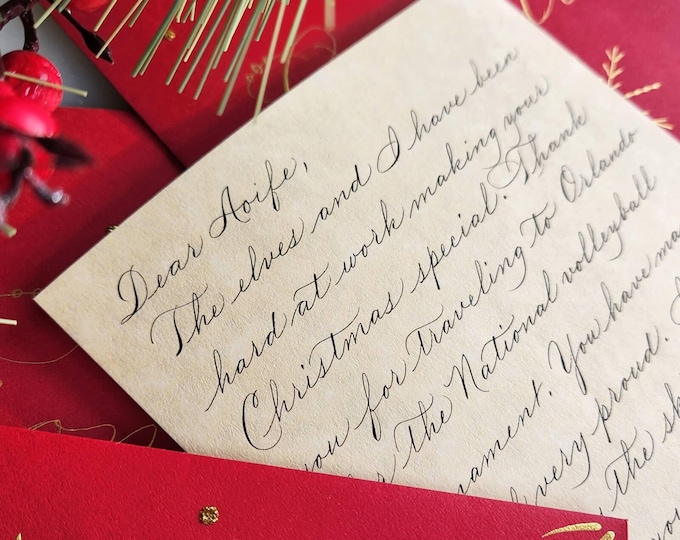 Dear Aoife,
The elves and I have been
hard at work making your
Christmas special. Thank
you for traveling to Orlando
the National volleyball
You have
very proud.
the